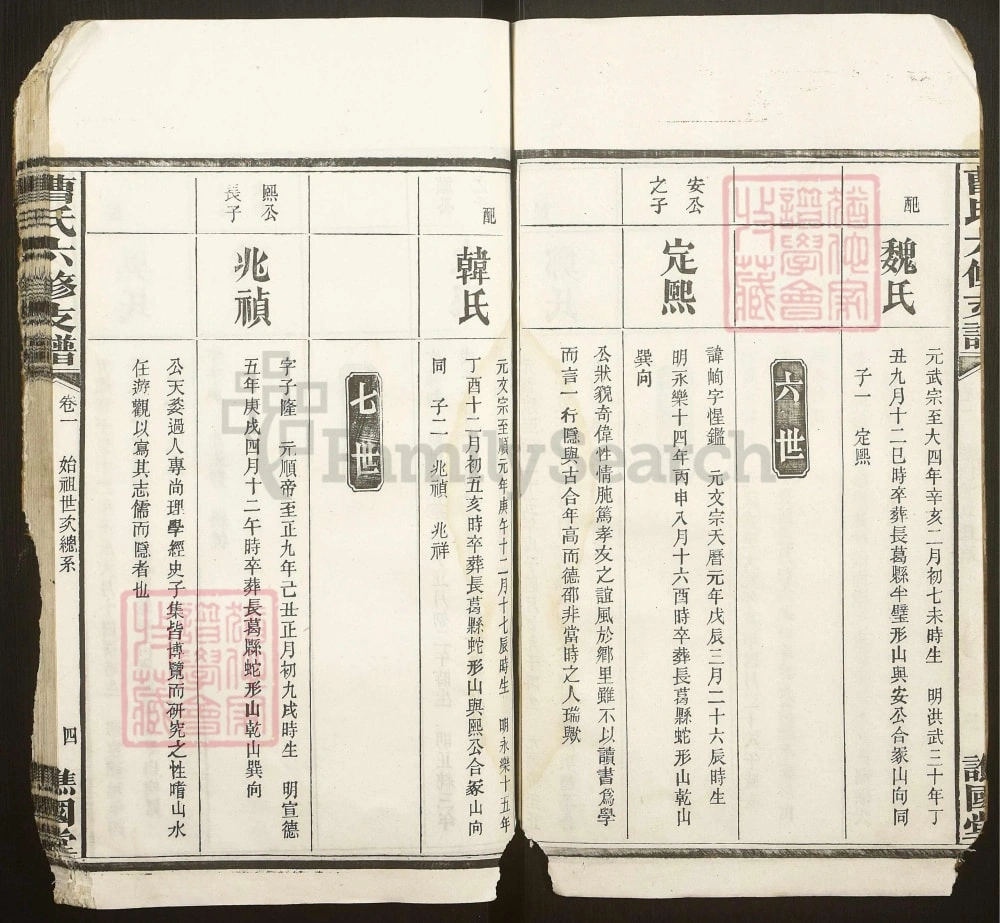 配
魏氏
元武宗至大四年辛亥二月初七未時生　明洪武三十年丁
丑九月十二巳時卒葬長葛縣半璧形山與安公合冢山向同
子一　定熙
六世
安公
之子
定熙
諱峋字惺鑑　元文宗天曆元年戊辰三月二十六辰時生
明永樂十四年丙申八月十六酉時卒葬長葛縣蛇形山乾山
巽向
公狀貌奇偉性情肫篤孝友之誼風於鄉里雖不以讀書爲學
而言一行隱與古合年高而德邵非當時之人瑞歟
配
韓氏
元文宗至順元年庚午十二月十七辰時生　明永樂十五年
丁酉十二月初五亥時卒葬長葛縣蛇形山與熙公合冢山向
同　子二　兆禎　兆祥
七世
熙公
長子
兆禎
字子隆　元順帝至正九年己丑正月初九戌時生　明宣德
五年庚戌四月十二午時卒葬長葛縣蛇形山乾山巽向
公天姿過人專尚理學經史子集皆博覽而研究之性嗜山水
任游觀以寫其志儒而隱者也
曹氏六修支譜
卷一
始祖世次總系
四
譙國堂
FamilySearch